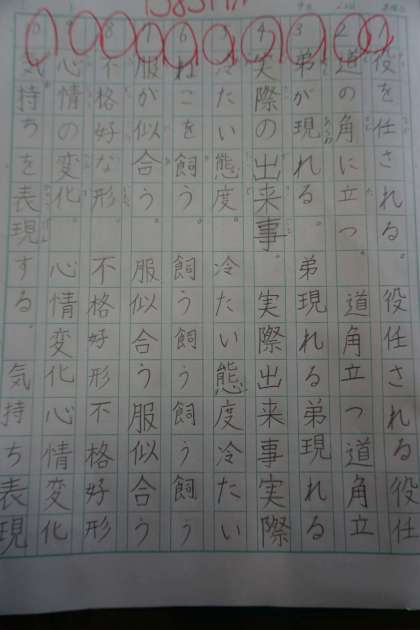 1 役を任される。 役任される役任
2 道の角に立つ。 道角立つ道角立
3 弟が現れる。 弟現れる弟現れる
4 実際の出来事。 実際出来事実際
冷たい態度。 冷たい態度冷たい
6 ねこを飼う。 飼う飼う飼う飼う
7 服が似合う。 服似合う服似合う
8 不格好な形。 不格好形不格好形
心情の変化。 心情変化心情変化
気持ちを表現する。 気持ち表現